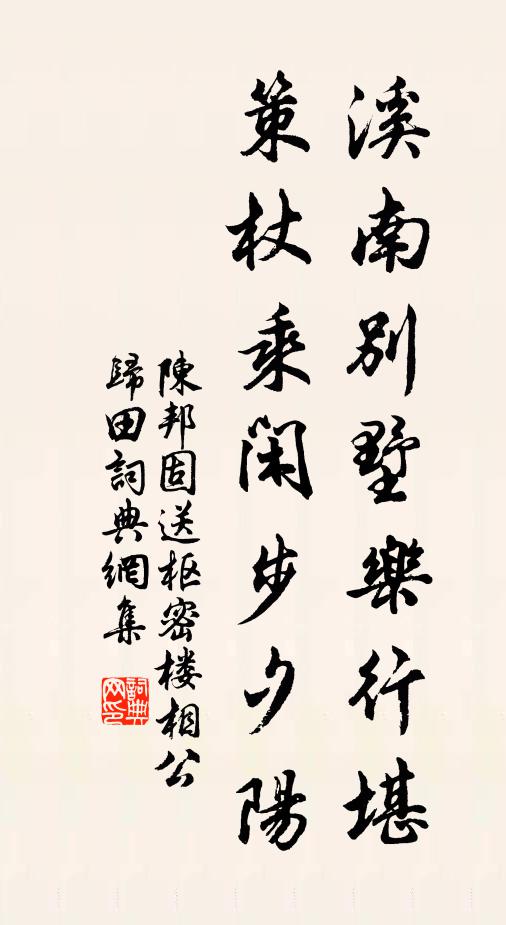 溪南別墅樂行堪
策杖乘閑步夕陽
陳邦固送枢密楼相公
歸田詞典網集
詞典网印